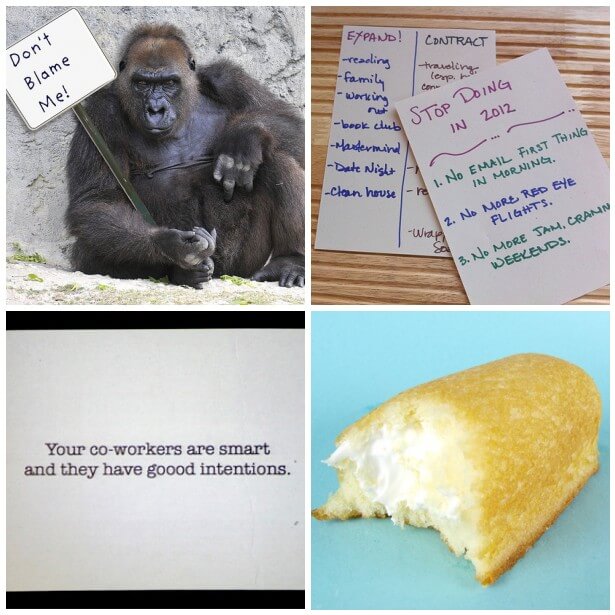 Don't
Blame
Me!
EXPAND!
-reading
-family
-working
out
-book club
-Mastermind
-Date Night
-Clean house
CONTRACT
-traveling
(esp.
STOP DOING
IN 2012
1. NO EMAIL FIRST THING
IN MORNING.
2. NO MORE RED EYE
FLIGHTS.
3. NO MORE JAM, CRAMN
WEEKENDS.
Your co-workers are smart
and they have goood intentions.